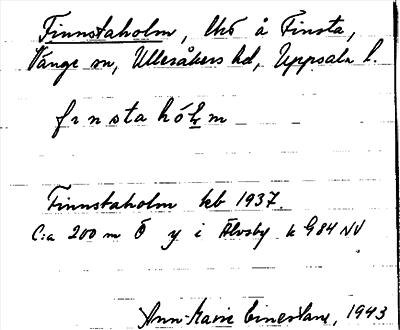 Finnstaholm, lhd å Finsta,
Vänge sn, Ulleråkers hd, Uppsala l.
finstahólm
Finnstaholm kb 1937.
C:a 200 m Ö y i Älvsby k 984 NV
Ann-Marie 1943